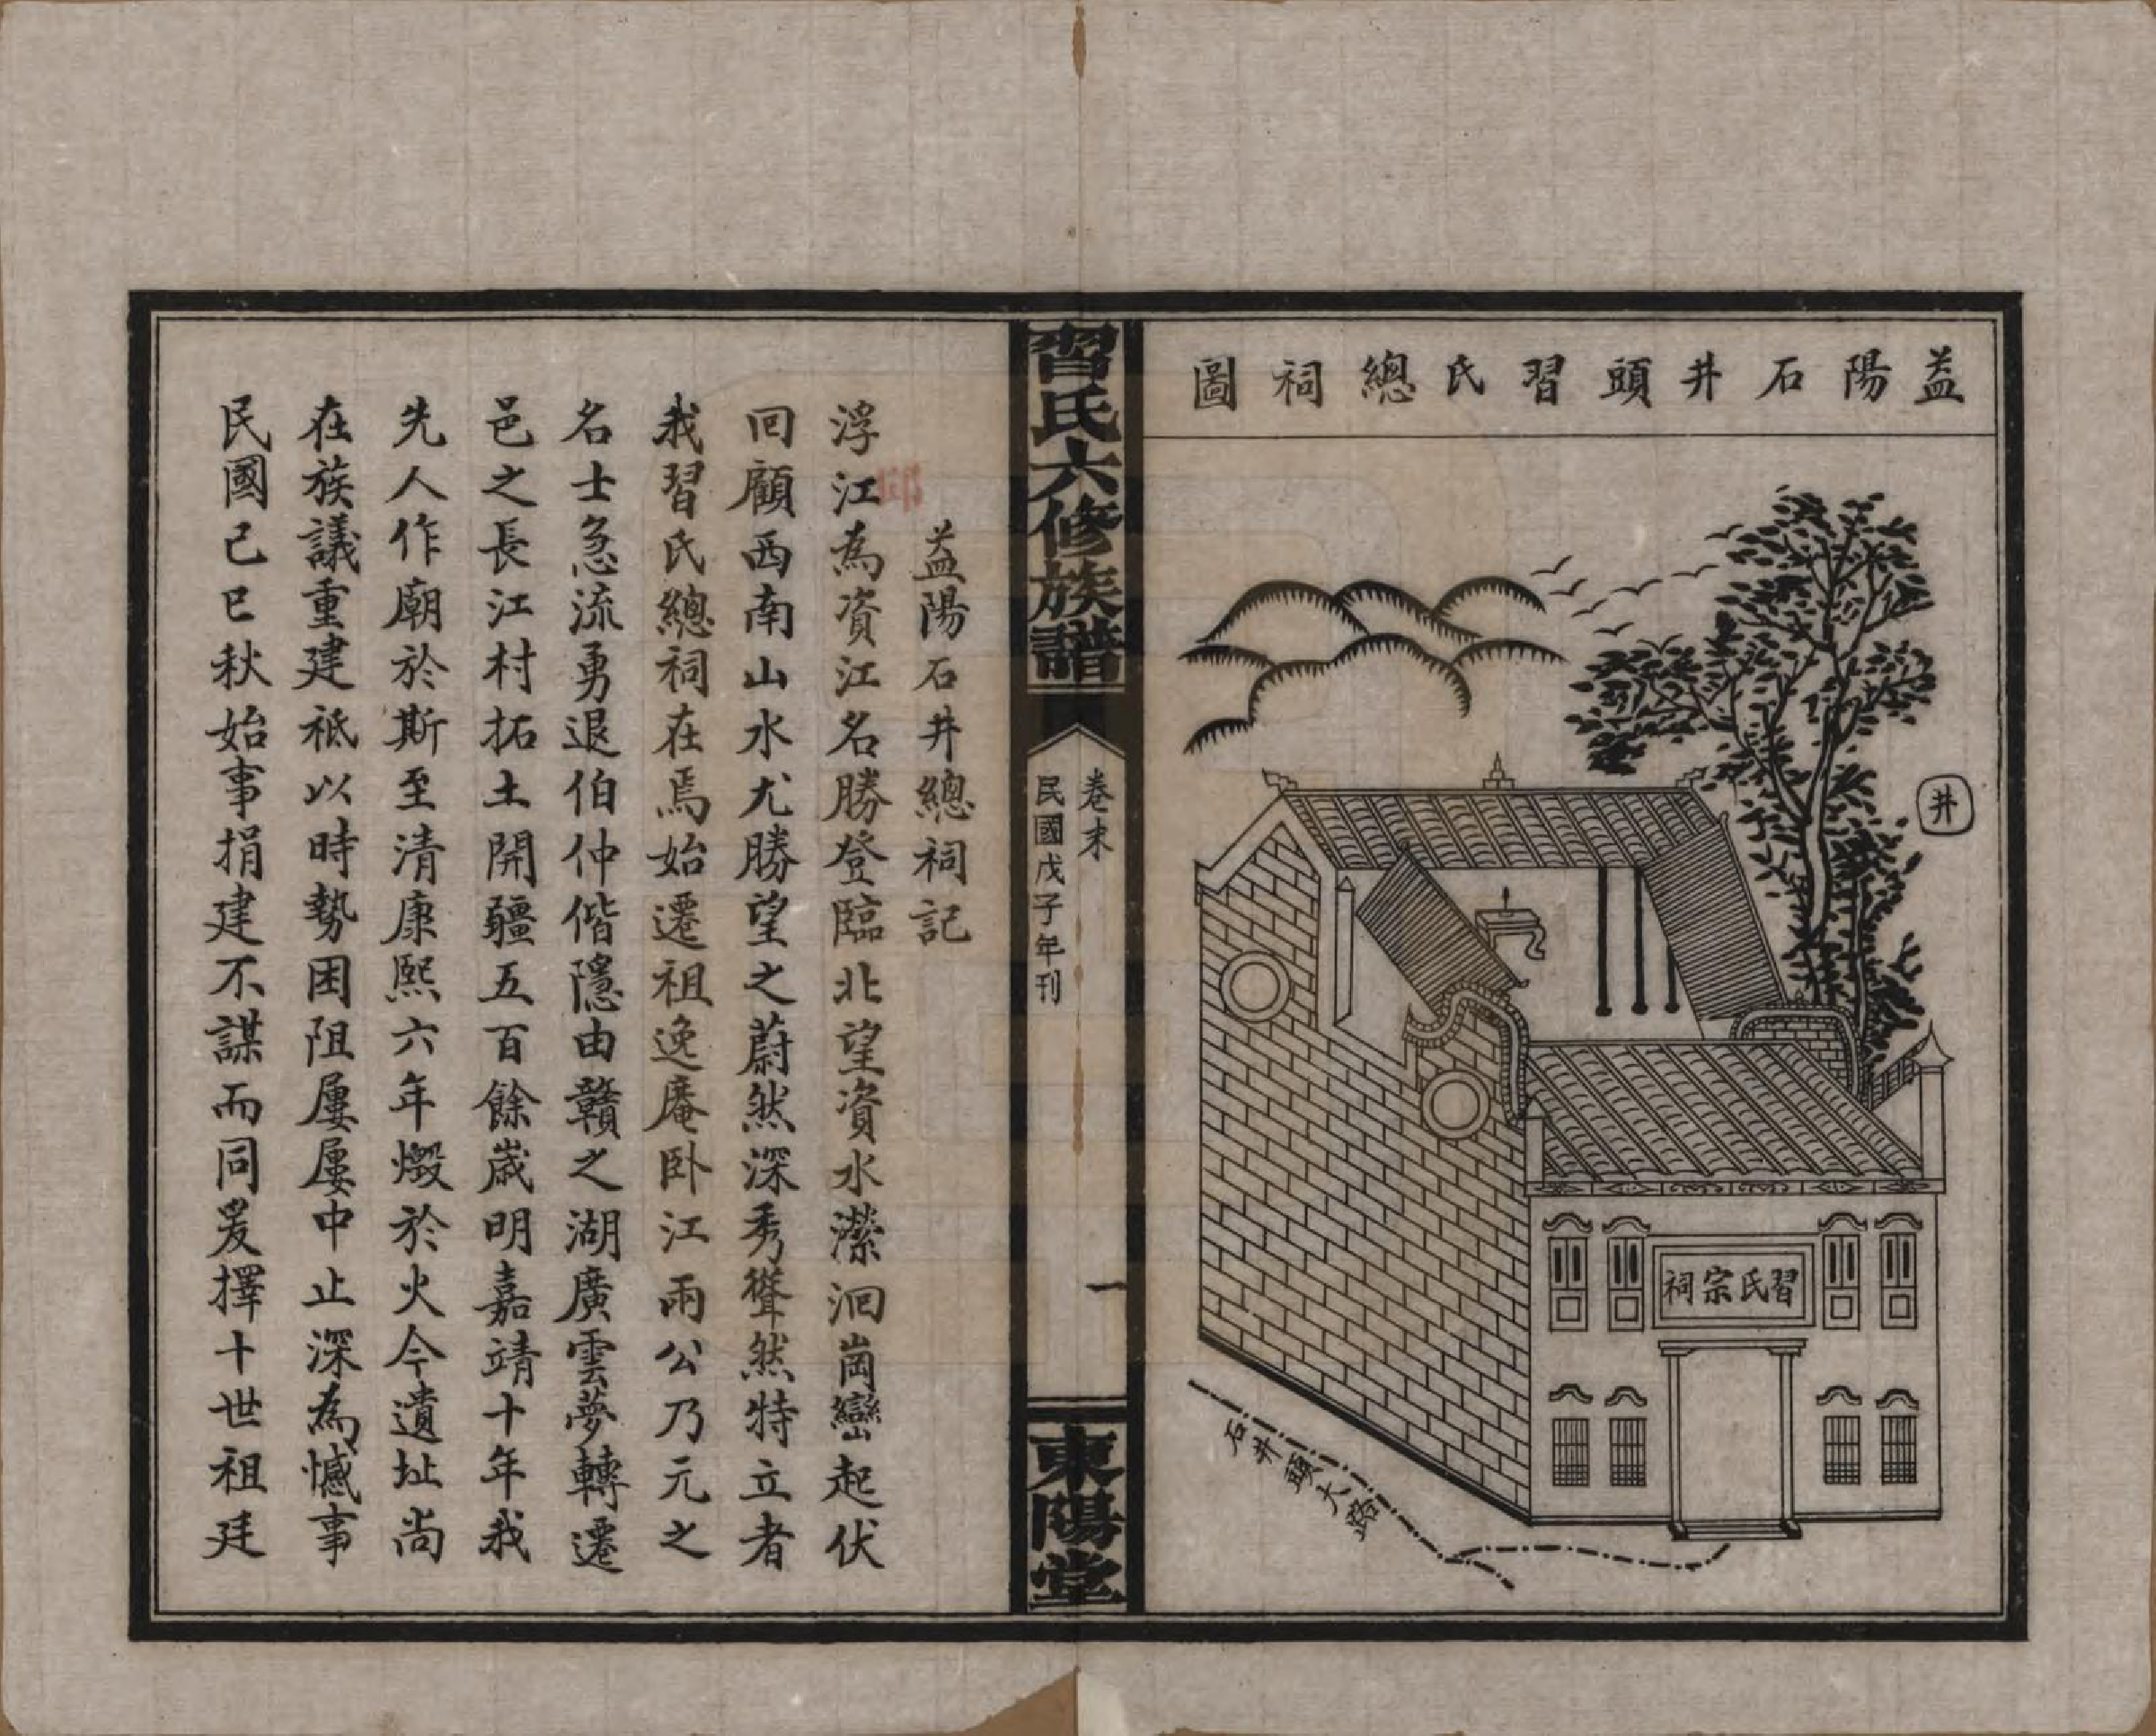 益陽石井頭習氏總祠圖
井
習氏宗祠
石井頭大路
習氏六修族譜
卷末
民國戊子年刊
一
東陽堂
益陽石井總祠記
浮江為資江名勝登臨北望資水瀠洄崗巒起伏
回顧西南山水尤勝望之蔚然深秀聳然特立者
我習氏總祠在焉始遷祖逸庵卧江兩公乃元之
名士急流勇退伯仲偕隱由贛之湖廣雲夢轉遷
邑之長江村拓土開疆五百餘歲明嘉靖十年我
先人作廟於斯至清康熙六年燬於火今遺址尚
在族議重建祗以時勢困阻屢屢中止深為憾事
民國己巳秋始事捐建不謀而同爰擇十世祖廷